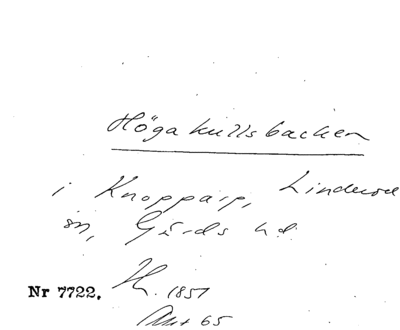 Höga kullsbacken
i Knopparp, Linderöd
sn, Gärds hd.
Nr 7722. H. 1851
Ant 65